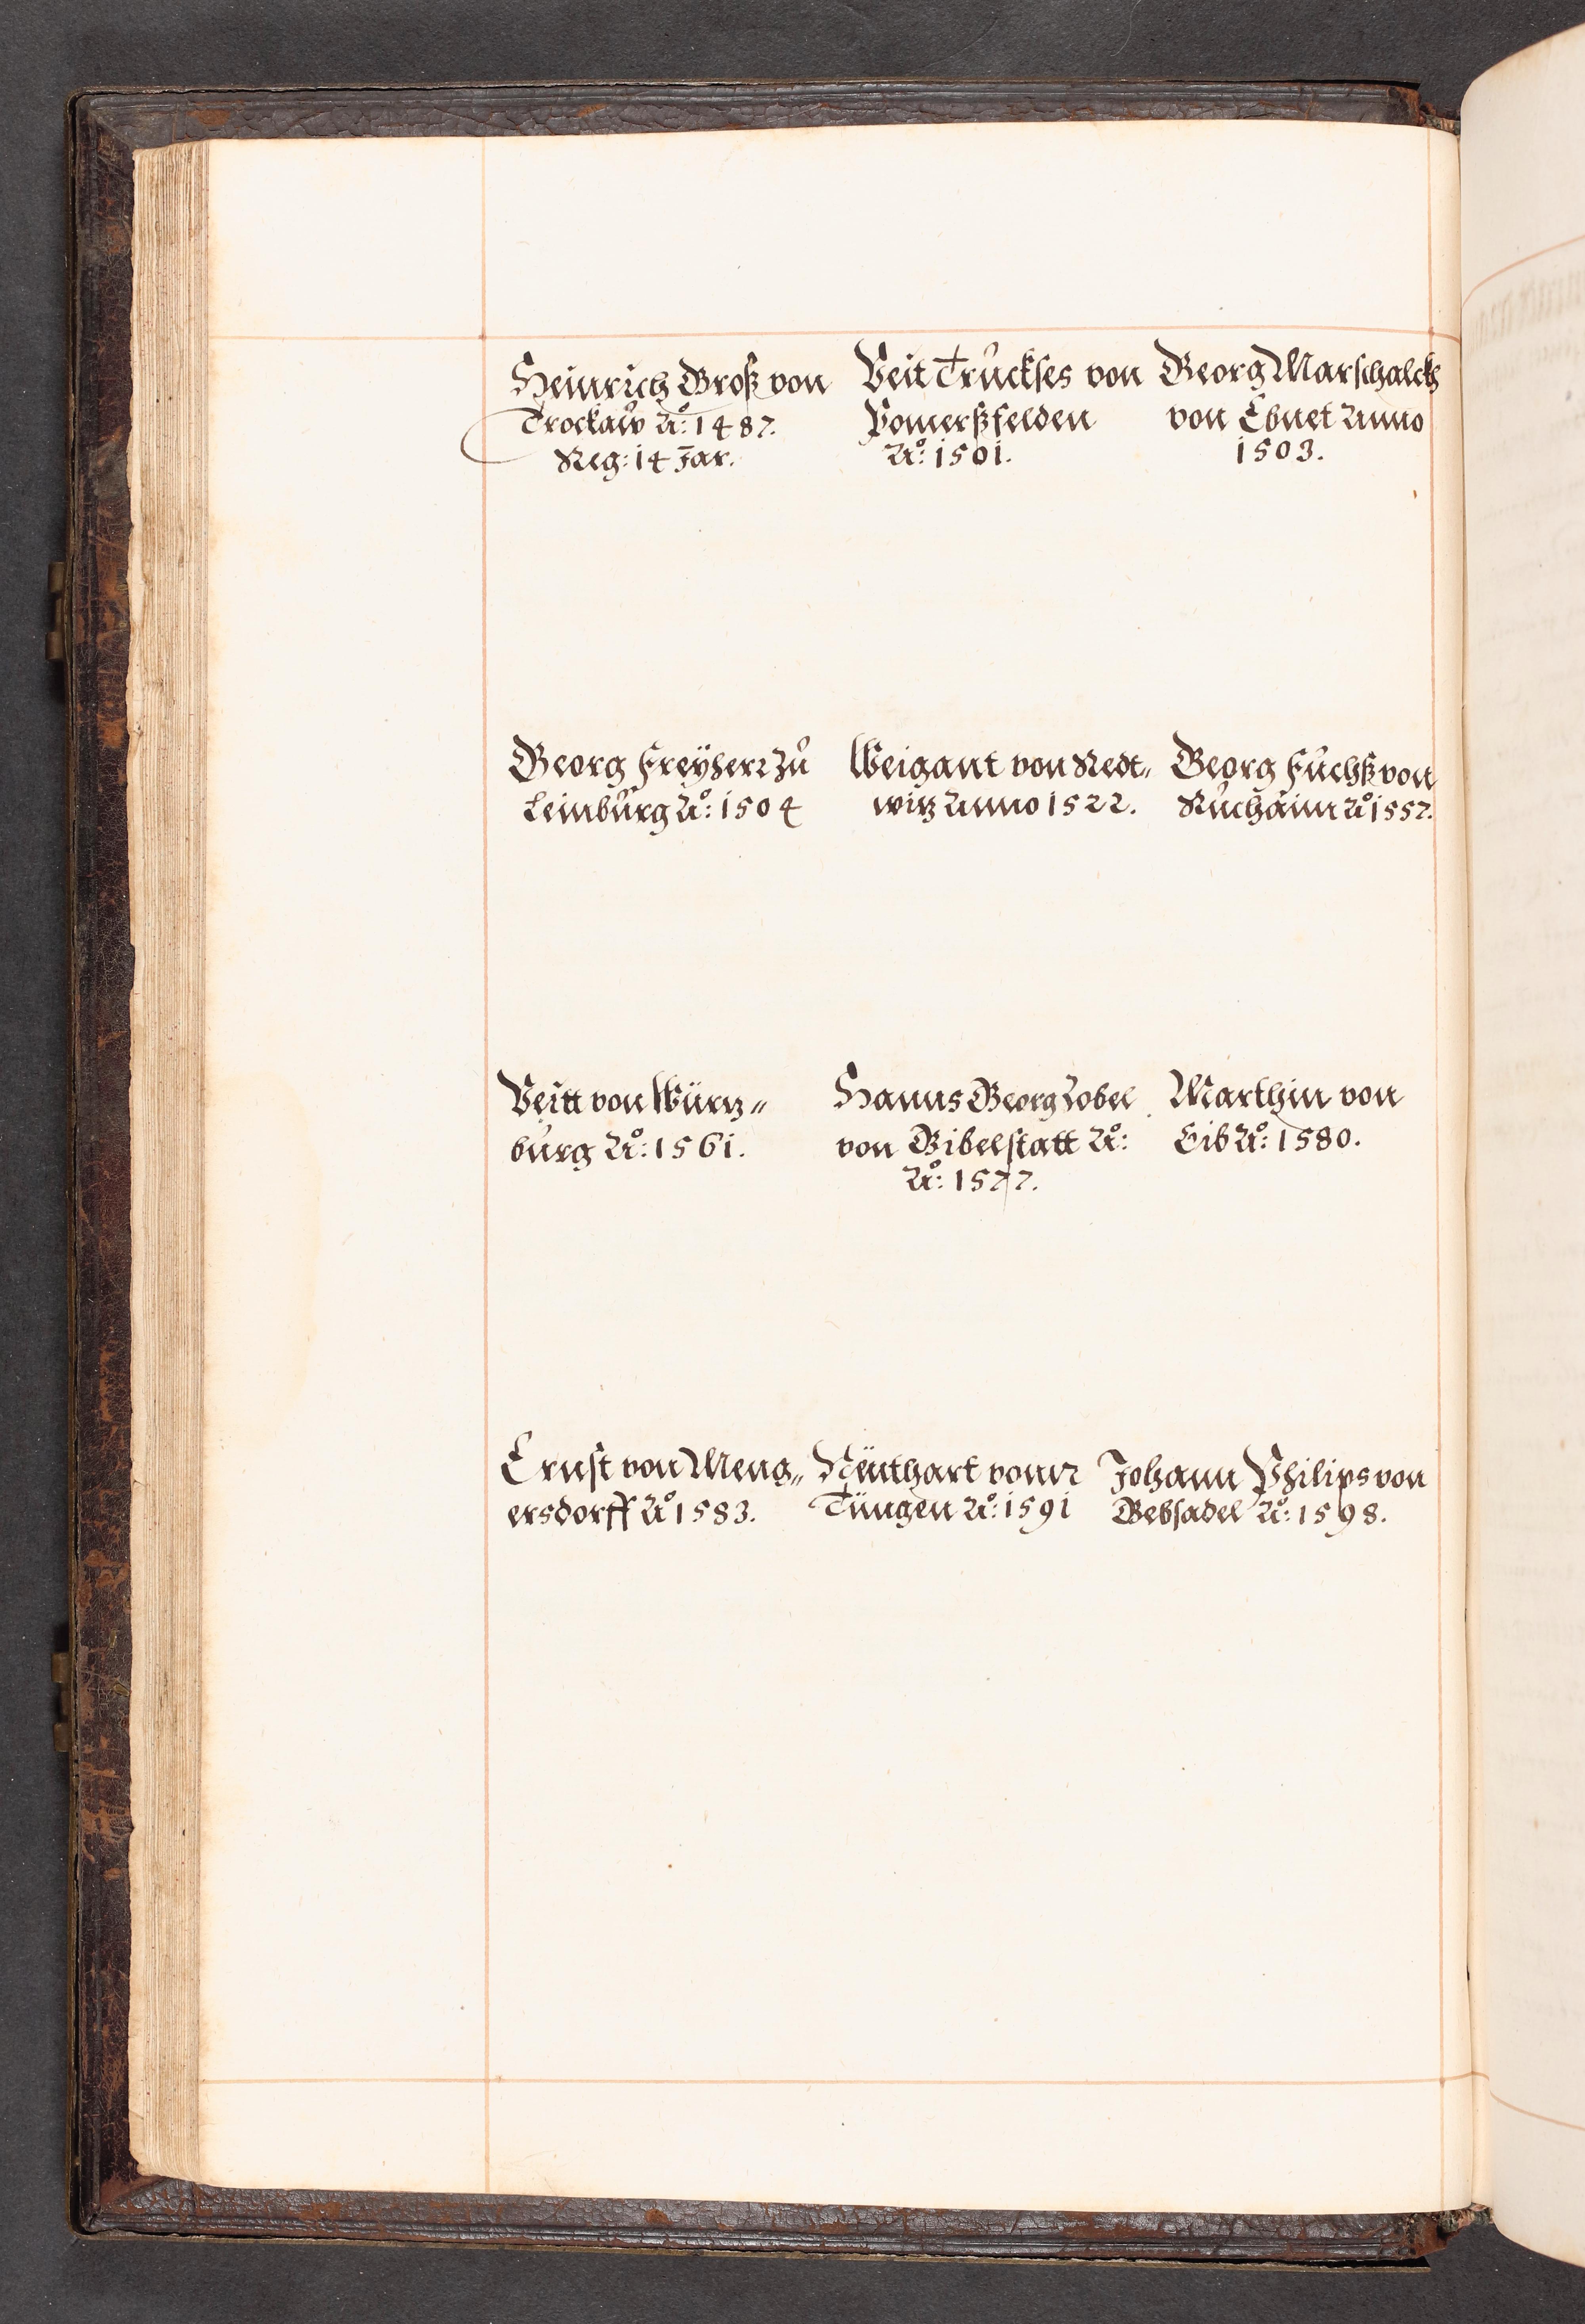 Heinrich Groß von
Trockaw Aº: 1487.
Reg: 14 Jar.
Veit Truckses von
Pomerßfelden
Aº: 1501.
Georg Marschalck
von Ebnet Anno
1503.
Georg Freÿherr zu
Leimburg Aº: 1504
Weigant von Redt„
witz Anno 1522.
Georg Fuchß von
Ruchaim Aº 1557.
Veitt von Würtz„
burg Aº: 1561.
Hanns Georg Zobel
von Gibelstatt Aº:
Aº: 1577.
Marthin von
Eib Aº: 1580.
Ernst von Meng„
ersdorff Aº 1583.
Neÿthart vonn
Tüngen Aº: 1591
Johann Philips von
Gebsadel Aº: 1598.